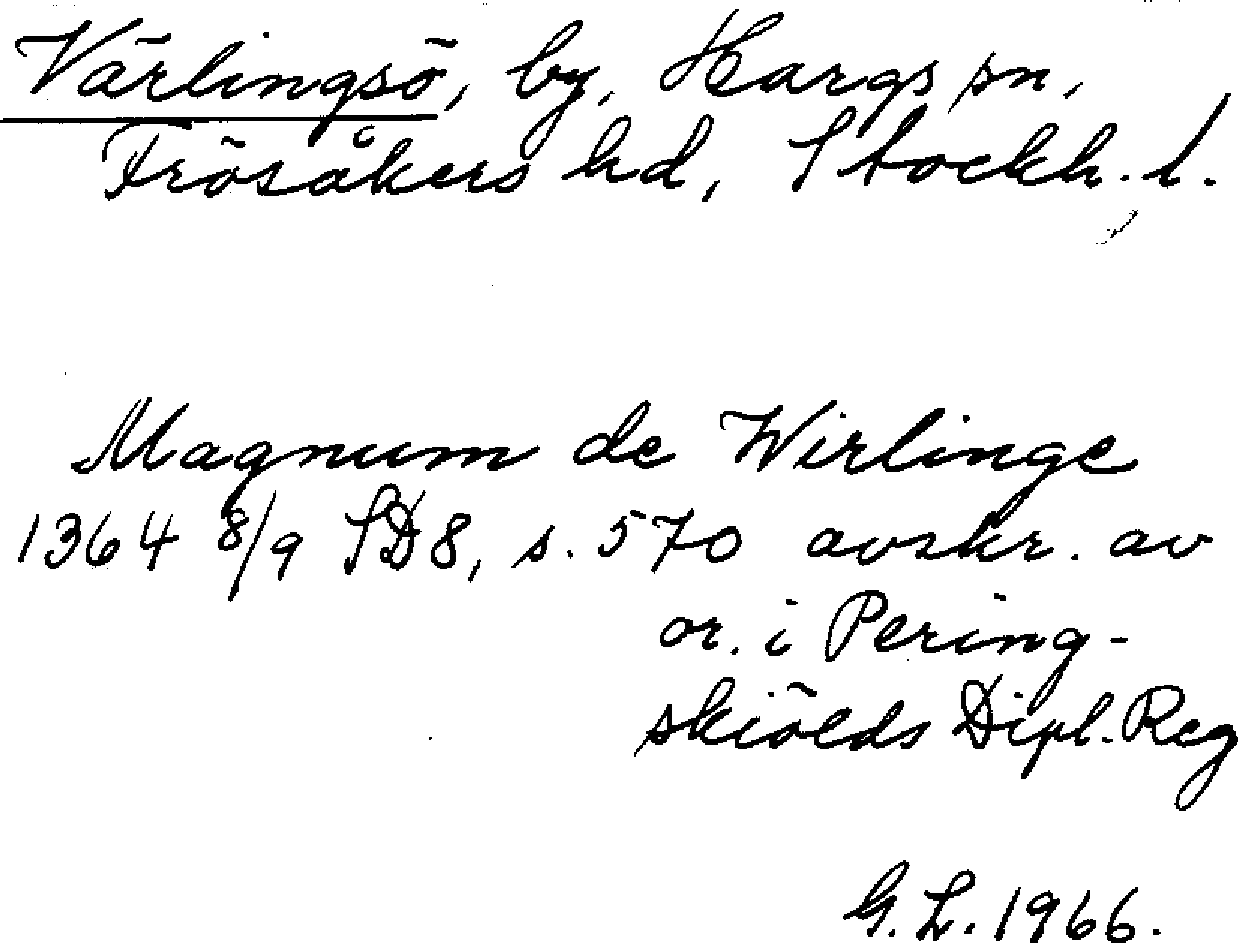 Värlingsö, by, Hargs sn,
Frösåkers hd, Stockh. l.
Magnum de Wirlinge
1364 8/9 SD8, s. 570 avskr. av
or. i Pering-
skiölds Dipl. Reg
G. L. 1966.